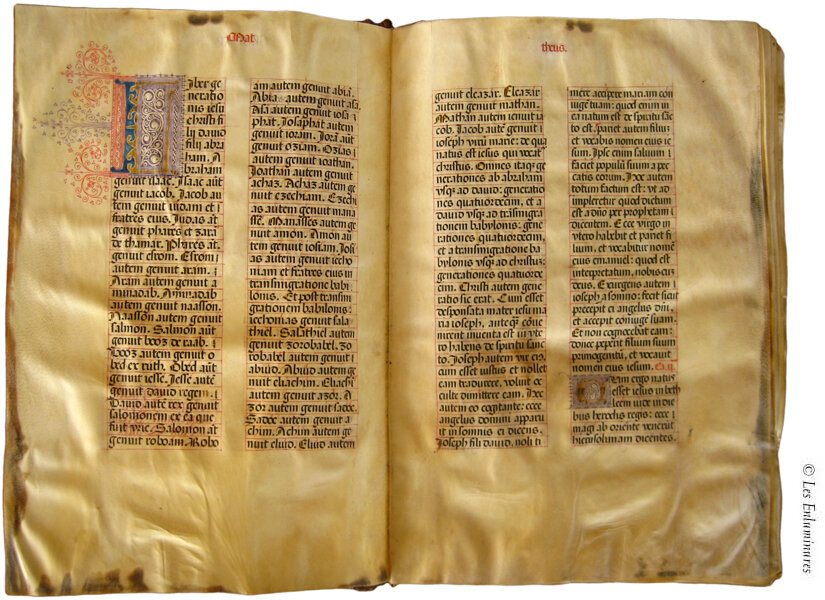 Mat
theus.
Iber ge
neratio
nis iesu
christi fi
lij david
filij abra
ham. A
braham
genuit isaac. Isaac aūt
genuit iacob. Iacob au
tem genuit iudam et
fratres eius. Iudas āt
genuit phares et zará
de thamar. Phares āt
genuit esrom. Esrom
autem genuit aram.
Aram autem genuit a
minadab. Aminadab
autem genuit naasson.
Naasson autem genuit
salmon. Salmon aūt
genuit booz de raab.
Booz autem genuit o
bed ex ruth. Obed aūt
genuit iesse. Iesse autē
genuit david regem.
David autē rex genuit
salomonem ex ea que
fuit vrie. Salomon āt
genuit roboam. Robo
am autem genuit abiā.
Abia autem genuit asa.
Asa autem genuit iosa
phat. Iosaphat autem
genuit ioram. Iorā aūt
genuit oziam. Ozias
autem genuit ioathan.
Ioathan autem genuit
achaz. Achaz autem ge
nuit ezechiam. Ezechi
as autem genuit mana
sse. Manasses autem ge
nuit amon. Amon au
tem genuit iosiam. Iosi
as autem genuit iecho
niam et fratres eius in
transmigratione babi
lonis. Et post transmi
grationem babilonis:
iechonias genuit sala
thiel. Salathiel autem
genuit zorobabel. Zo
robabel autem genuit
abiud. Abiud autem ge
nuit eliachim. Eliachi
autem genuit azor. A
zor autem genuit sadoc.
Sadoc autem genuit a
chim. Achim autem ge
nuit eliud. Eliud autem
genuit eleazar. Eleazar
autem genuit mathan.
Mathan autem genuit ia
cob. Iacob autē genuit
ioseph virū marie: de qua
natus est iesus qui vocat
christus. Omnes itaqꝫ ge
nerationes ab abraham
vsqꝫ ad dauid: generatio
nes quatuordecim, et a
dauid vsqꝫ ad trāsmigra
tionem babylonis: gene
rationes quatuordecim,
et a transmigratione ba
bylonis vsqꝫ ad christum:
generationes quatuorde
cim. Christi autem gene
ratio sic erat. Cum esset
desponsata mater iesu ma
ria ioseph, anteqꝫ cōue
nirent inuenta est in vte
ro habens de spiritu sanc
to. Ioseph autem vir eius,
cum esset iustus et nollet
eam traducere, voluit oc
culte dimittere eam. Hec
autem eo cogitante: ecce
angelus domini apparu
it in somnis ei dicens.
Ioseph fili dauid, noli ti
mere accipere mariam con
iugē tuam: quod enim in
ea natum est de spiritu sāc
to est. Pariet autem filiū
et vocabis nomen eius ie
sum. Ipse enim saluum
faciet populū suum a pec
catis eorum. Hoc autem
totum factum est: vt ad
impleretur quod dictum
est a dno per prophetam
dicentem. Ecce virgo in
vtero habebit et pariet fi
lium, et vocabitur nomē
eius emanuel: quod est
interpretatum, nobiscum
deus. Exurgens autem
ioseph a somno: fecit sicut
precepit ei angelus dni,
et accepit coniugē suam.
Et non cognoscebat eam:
donec peperit filium suum
primogenitū, et vocauit
nomen eius iesum. Ca. ij.
Cum ergo natus
esset iesus in beth
leem iude in die
bus herodis regis: ecce
magi ab oriente venerūt
hierosolimam dicentes.
© Les Enluminures